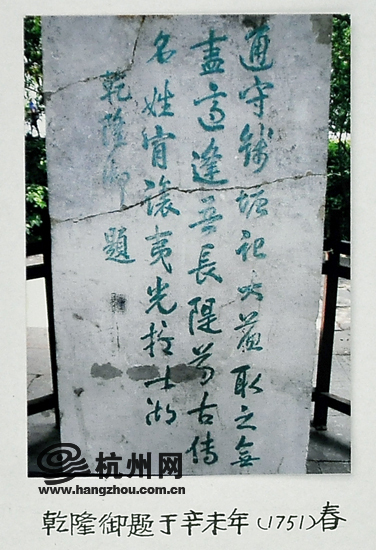 通守錢塘記大蘇取之無
盡適逢吾長隄萬古傳
名姓肯讓夷光擅此湖
乾隆御題
杭州网
www.hangzhou.com.cn
乾隆御题于辛未年(1751)春